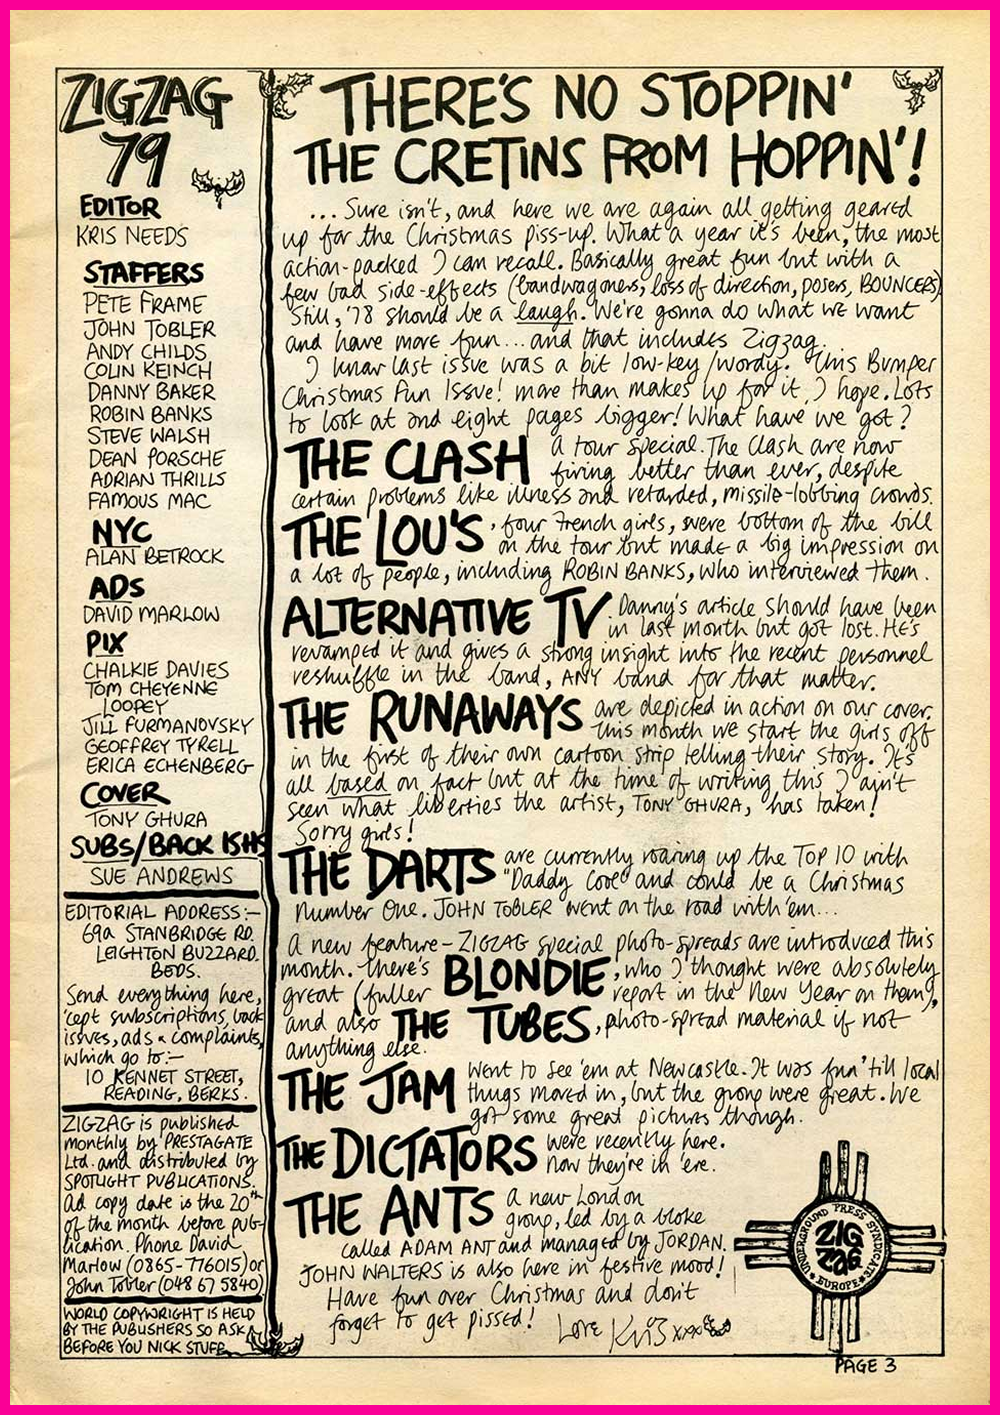 ZIGZAG
79
EDITOR
KRIS NEEDS
STAFFERS
PETE FRAME
JOHN TOBLER
ANDY CHILDS
COLIN KEINCH
DANNY BAKER
ROBIN BANKS
STEVE WALSH
DEAN PORSCHE
ADRIAN THRILLS
FAMOUS MAC
NYC
ALAN BETROCK
ADS
DAVID MARLOW
PIX
CHALKIE DAVIES
TOM CHEYENNE
LOOPEY
JILL FURMANOVSKY
GEOFFREY TYRELL
ERICA ECHENBERG
COVER
TONY GHURA
SUBS/BACK ISHS
SUE ANDREWS
EDITORIAL ADDRESS:-
69a STANBRIDGE RD.
LEIGHTON BUZZARD.
BEDS.
Send everything here,
'cept subscriptions, back
issues, ads & complaints,
which go to:-
10 KENNET STREET,
READING, BERKS.
ZIGZAG is published
monthly by PRESTAGATE
Ltd. and distributed by
SPOTLIGHT PUBLICATIONS.
Ad copy date is the 20th
of the month before pub-
lication. Phone David
Marlow (0865-776015) or
John Tobler (048 67 5840)
WORLD COPYWRIGHT IS HELD
BY THE PUBLISHERS SO ASK
BEFORE YOU NICK STUFF
THERE'S NO STOPPIN'
THE CRETINS FROM HOPPIN'!
... Sure isn't, and here we are again all getting geared
up for the Christmas piss-up. What a year it's been, the most
action-packed I can recall. Basically great fun but with a
few bad side-effects (bandwagoners, loss of direction, posers, BOUNCERS).
Still, '78 should be a laugh. We're gonna do what we want
and have more fun... and that includes Zigzag.
I know last issue was a bit low-key/wordy. This Bumper
Christmas Fun Issue! more than makes up for it, I hope. Lots
to look at and eight pages bigger! What have we got?
THE CLASH a tour special. The Clash are now
firing better than ever, despite
certain problems like illness and retarded, missile-lobbing crowds.
THE LOU'S, four French girls, were bottom of the bill
on the tour but made a big impression on
a lot of people, including ROBIN BANKS, who interviewed them.
ALTERNATIVE TV Danny's article should have been
in last month but got lost. He's
revamped it and gives a strong insight into the recent personnel
reshuffle in the band, ANY band for that matter.
THE RUNAWAYS are depicted in action on our cover.
This month we start the girls off
in the first of their own cartoon strip telling their story. It's
all based on fact but at the time of writing this I ain't
seen what liberties the artist, TONY GHURA, has taken!
Sorry girls!
THE DARTS are currently roaring up the Top 10 with
"Daddy Cool" and could be a Christmas
Number One. JOHN TOBLER went on the road with 'em...
A new feature – ZIGZAG special photo-spreads are introduced this
month. There's BLONDIE, who I thought were absolutely
great (fuller report in the New Year on them),
and also THE TUBES, photo-spread material if not
anything else.
THE JAM Went to see 'em at Newcastle. It was fun 'till local
thugs moved in, but the group were great. We
got some great pictures though.
THE DICTATORS Were recently here.
Now they're in 'ere.
THE ANTS a new London
group, led by a bloke
called ADAM ANT and managed by JORDAN.
JOHN WALTERS is also here in festive mood!
Have fun over Christmas and don't
forget to get pissed! Love Kris xxx
UNDERGROUND PRESS SYNDICATE
ZIG
ZAG
EUROPE
PAGE 3